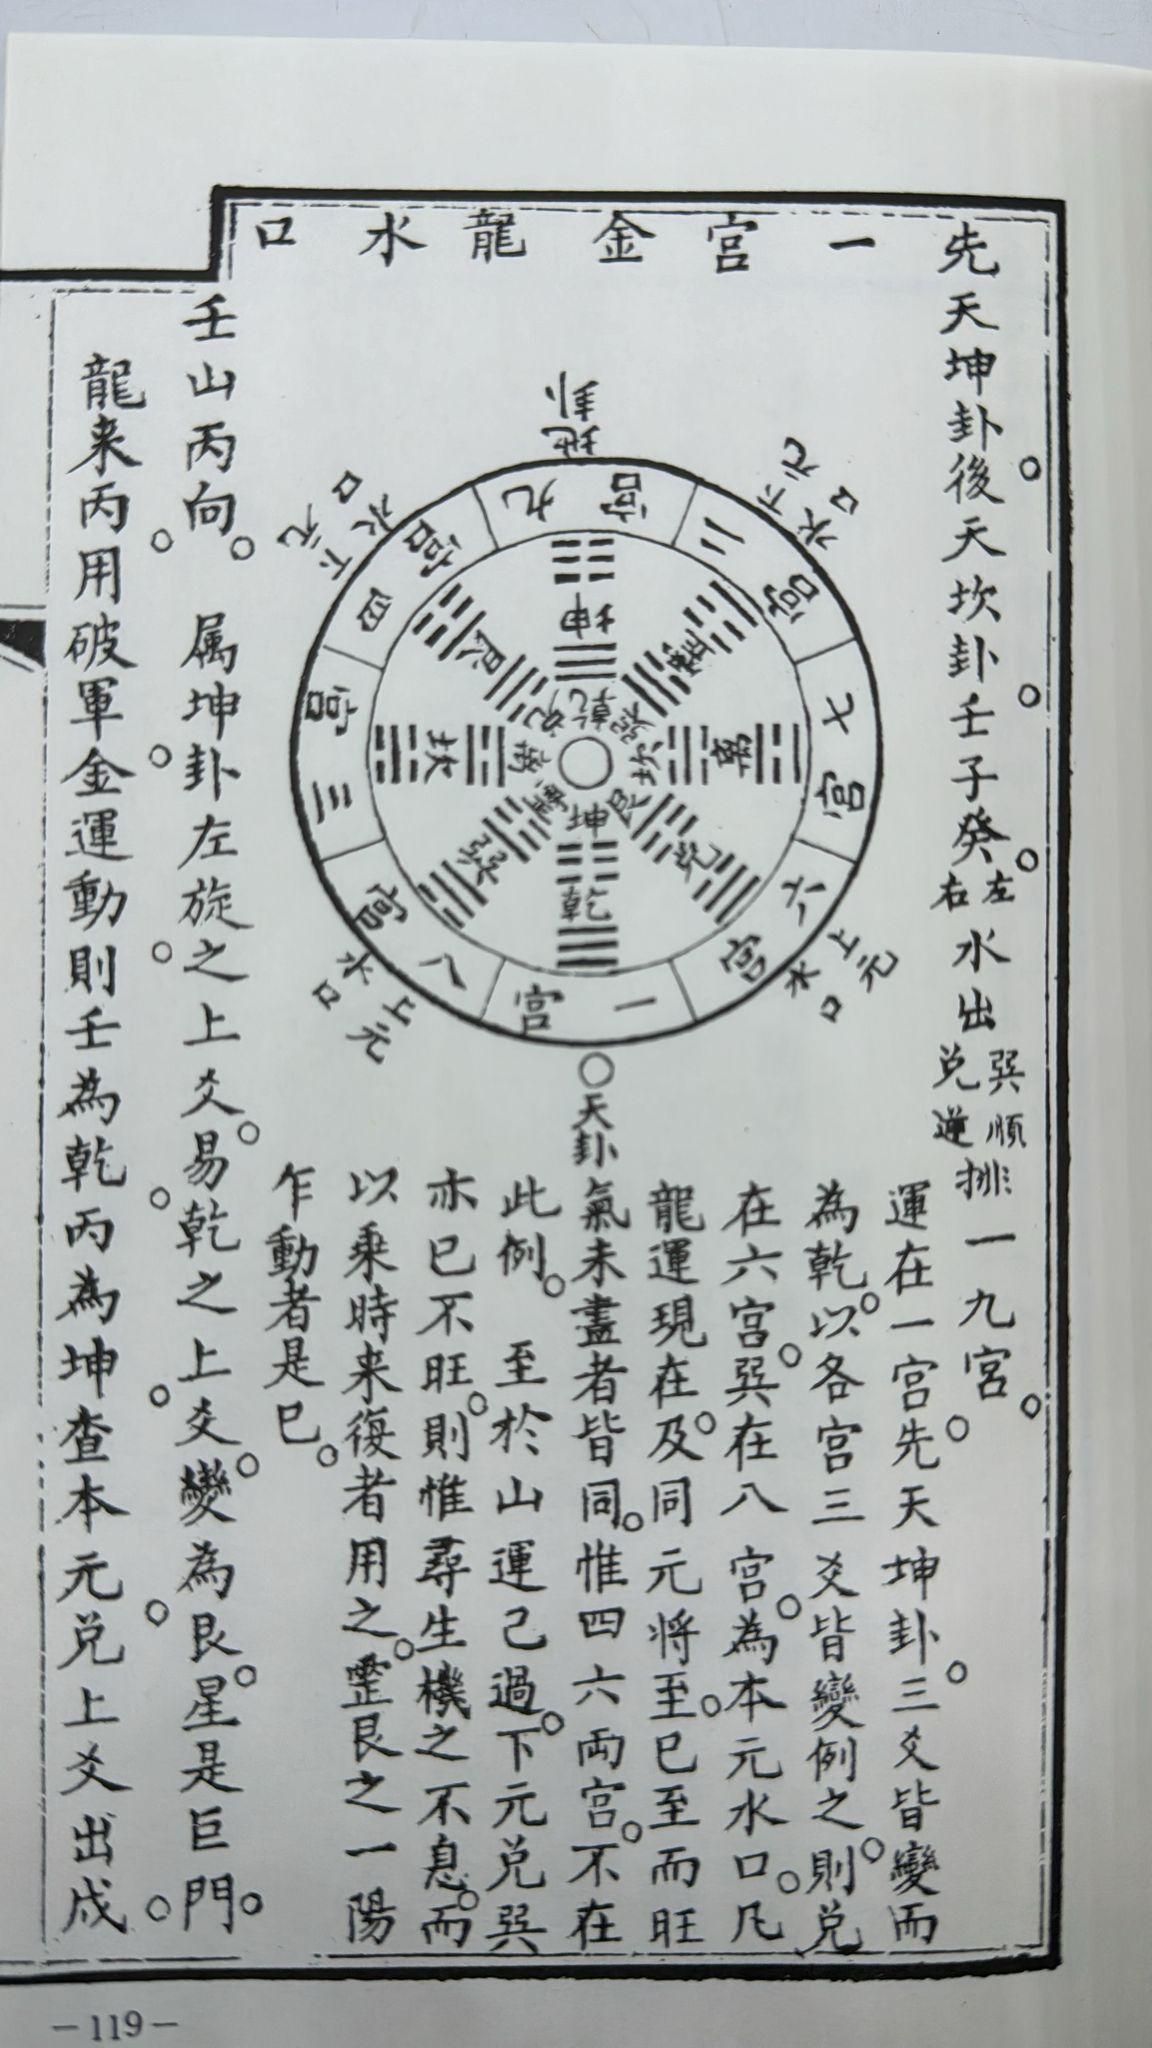 口水龍金宮一
先天坤卦後天坎卦壬子癸左右水出巽順兌逆排一九宮
運在一宮先天坤卦三爻皆變而
為乾以各宮三爻皆變例之則兌
在六宮巽在八宮為本元水口凡
龍運現在及同元将至已至而旺
氣未盡者皆同惟四六両宮不在
此例 至於山運己過下元兌巽
亦已不旺則惟尋生機之不息而
以乗時来復者用之霊艮之一陽
乍動者是已
地卦
九宮
二宮
水口下元
七宮
六宮
水口上元
一宮
天卦
八宮
水口上元
三宮
四宮
水口下元
坤
乾
巽
離
坎
兌
艮
乾
坤
巽
震
坎
離
艮
兌
壬山丙向 属坤卦左旋之上爻易乾之上爻變為艮星是巨門
龍来丙用破軍金運動則壬為乾丙為坤查本元兌上爻出戍
-119-